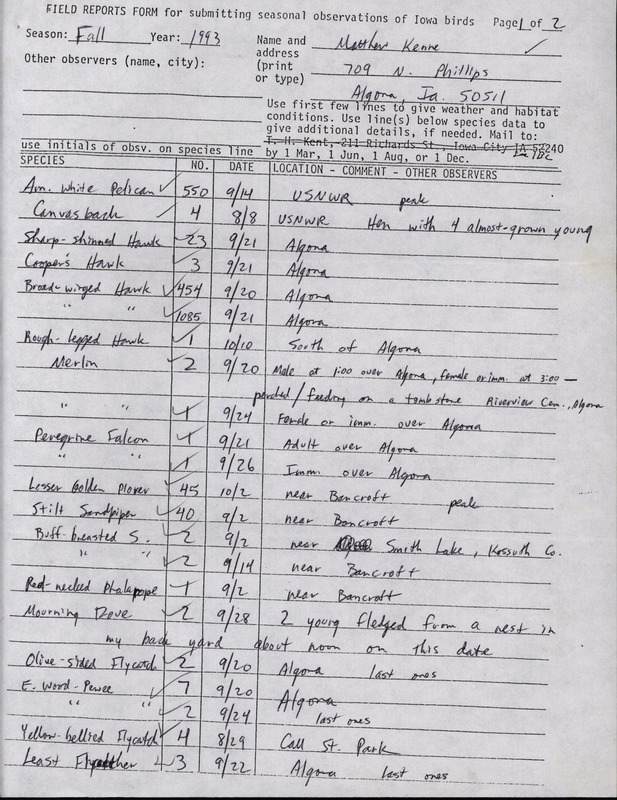 FIELD REPORTS FORM for submitting seasonal observations of Iowa birds Page 1 of 2
Season: Fall Year: 1993
Name and address (print or type) Matthew Kenne
709 N. Phillips
Algona, Ia. 50511
Other observers (name, city):
Use first few lines to give weather and habitat
conditions. Use line(s) below species data to
give additional details, if needed. Mail to:
T. H. Kent, 211 Richards St., Iowa City IA 52240
by 1 Mar, 1 Jun, 1 Aug, or 1 Dec.
use initials of obsv. on species line
SPECIES NO. DATE LOCATION - COMMENT - OTHER OBSERVERS
Am. White Pelican ✓ 550 9/14 USNWR peak
Canvasback ✓ 4 8/8 USNWR Hen with 4 almost-grown young
Sharp-shinned Hawk ✓ 23 9/21 Algona
Cooper's Hawk ✓ 3 9/21 Algona
Broad-winged Hawk ✓ 454 9/20 Algona
" " ✓ 1085 9/21 Algona
Rough-legged Hawk ✓ 1 10/10 South of Algona
Merlin ✓ 2 9/20 Male at 1:00 over Algona, female or imm. at 3:00 —
perched/feeding on a tombstone Riverview Cem., Algona
" " ✓ 1 9/24 Female or imm. over Algona
Peregrine Falcon ✓ 1 9/21 Adult over Algona
" " ✓ 1 9/26 Imm. over Algona
Lesser Golden Plover ✓ 45 10/2 near Bancroft peak
Stilt Sandpiper ✓ 40 9/2 near Bancroft
Buff-breasted S. ✓ 2 9/2 near Smith Lake, Kossuth Co.
" " ✓ 2 9/14 near Bancroft
Red-necked Phalarope ✓ 1 9/2 near Bancroft
Mourning Dove ✓ 2 9/28 2 young fledged from a nest in
my back yard about noon on this date
Olive-sided Flycatch ✓ 2 9/20 Algona last ones
E. Wood-Pewee ✓ 7 9/20 Algona
" " ✓ 2 9/24 last ones
Yellow-bellied Flycatch ✓ 4 8/29 Call St. Park
Least Flycatcher ✓ 3 9/22 Algona last ones